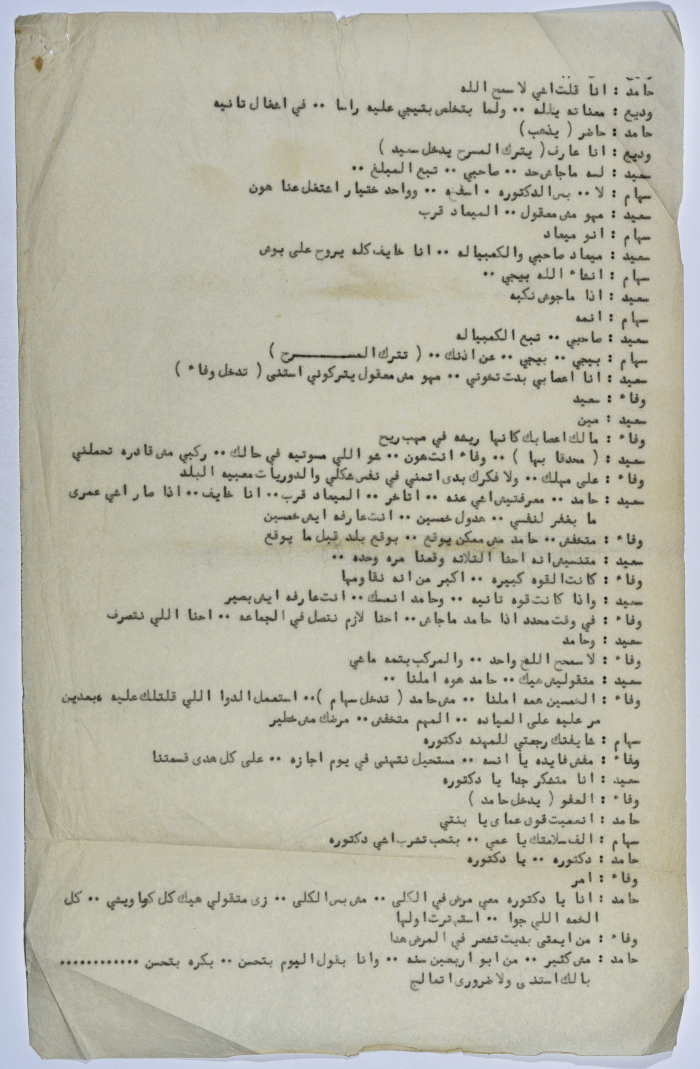 حامد : انا قلت اشي لا سمح الله
وديع : معناته يلله ٠٠ ولما بتخلص بتيجي عليه راسا ٠٠ في اشغال تانيه
حامد : حاضر ( يذهب )
وديع : انا عارف ( يترك المسرح يدخل سعيد )
سعيد : لسه ماجاش حد ٠٠ صاحبي ٠٠ تبع المبلغ ٠٠
سهام : لا ٠٠ بس الدكتوره ٠ اسفه ٠٠ وواحد ختيار اشتغل عنا هون
سعيد : مهو مش معقول ٠٠ الميعاد قرب
سهام : انو ميعاد
سعيد : ميعاد صاحبي والكمبياله ٠٠ انا خايف كله يروح على بوش
سهام : انشاء الله بيجي ٠٠
سعيد : اذا ماجوش نكبه
سهام : ائمه
سعيد : صاحبي ٠٠ تبع الكمبياله
سهام : بيجي ٠٠ بيجي ٠٠ عن اذنك ٠٠ ( تترك المســـــــرح )
سعيد : انا اعصابي بدت تخوني ٠٠ مهو مش معقول يتركوني استنى ( تدخل وفاء )
وفاء : سعيد
سعيد : مين
وفاء : مالك اعصابك كانها ريشه في مهب ريح
سعيد : ( محدقا بها ) ٠٠ وفاء انت هون ٠٠ شو اللي مسوتيه في حالك ٠٠ ركبي مش قادره تحملني
وفاء : على مهلك ٠٠ ولا فكرك بدى اتمشي في نفس شكلي والدوريات معبيه البلد
سعيد : حامد ٠٠ معرفتيش اشي عنه ٠٠ اتاخر ٠٠ الميعاد قرب ٠٠ انا خايف ٠٠ اذا صار اشي عمرى
ما بغفر لنفسي ٠٠ هدول خمسين ٠٠ انت عارفه ايش خمسين
وفاء : متخفش ٠٠ حامد مش ممكن يوقع ٠٠ بوقع بلد قبل ما يوقع
سعيد : متنسيش انه احنا الثلاثه وقعنا مره وحده ٠٠
وفاء : كانت القوه كبيره ٠٠ اكبر من انه نقاومها
سعيد : واذا كانت قوه تانيه ٠٠ وحامد انمسك ٠٠ انت عارفه ايش بصير
وفاء : في وقت محدد اذا حامد ماجاش ٠٠ احنا لازم نتصل في الجماعه ٠٠ احنا اللي نتصرف
سعيد : وحامد
وفاء : لا سمح الله واحد ٠٠ والمركب بتمه ماشي
سعيد : متقوليش هيك ٠٠ حامد هوه املنا ٠٠
وفاء : الخمسين همه املنا ٠٠ مش حامد ( تدخل سهام ) ٠٠ استعمل الدوا اللي قلتلك عليه وبعدين
مر عليه على العياده ٠٠ المهم متخفش ٠٠ مرضك مش خطير
سهام : شايفتك رجعتي للمهنه دكتوره
وفاء : مفش فايده يا انسه ٠٠ مستحيل نتهنى في يوم اجازه ٠٠ على كل هدى قسمتنا
سعيد : انا متشكر جدا يا دكتوره
وفاء : العفو ( يدخل حامد )
حامد : انعميت قوى عماى يا بنتي
سهام : الف سلامتك يا عمي ٠٠ بتحب تشرب اشي دكتوره
حامد : دكتوره ٠٠ يا دكتوره
وفاء : امر
حامد : انا يا دكتوره معي مرض في الكلى ٠٠ مش بس الكلى ٠٠ زى متقولي هيك كل كوا ويشي ٠٠ كل
الخمه اللي جوا ٠٠ استهترت اولها
وفاء : من ايمتى بديت تشعر في المرض هدا
حامد : مش كثير ٠٠ من ابو اربعين سنه ٠٠ وانا بقول اليوم بتحسن ٠٠ بكره بتحسن ٠٠٠٠٠٠٠٠٠٠٠٠
بالك استنى ولا ضرورى اتعالج